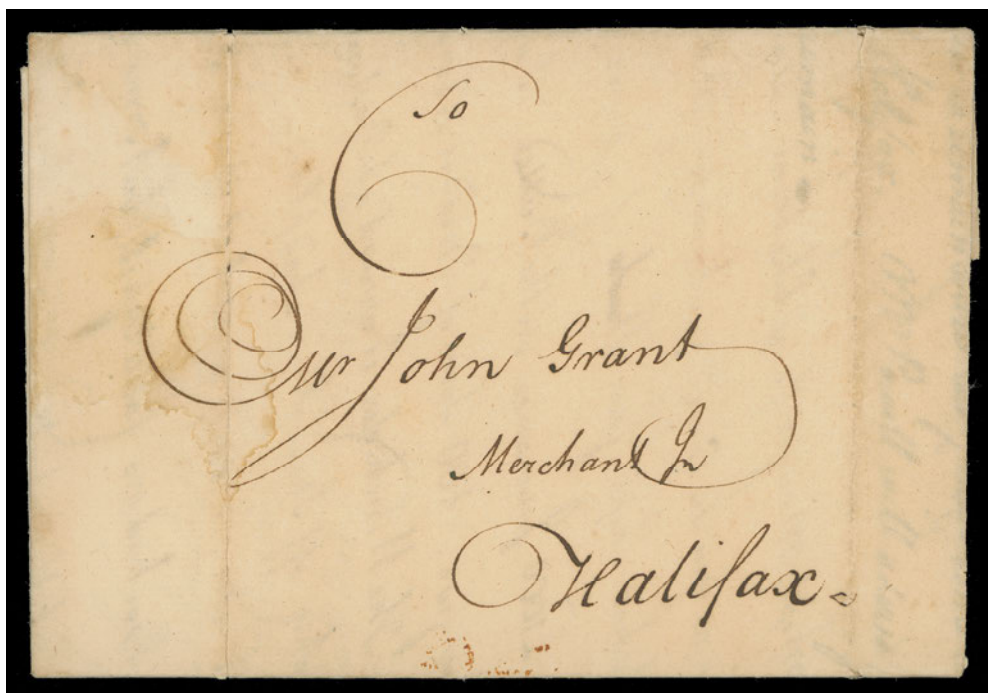 To
Mr John Grant
Merchant In
Halifax